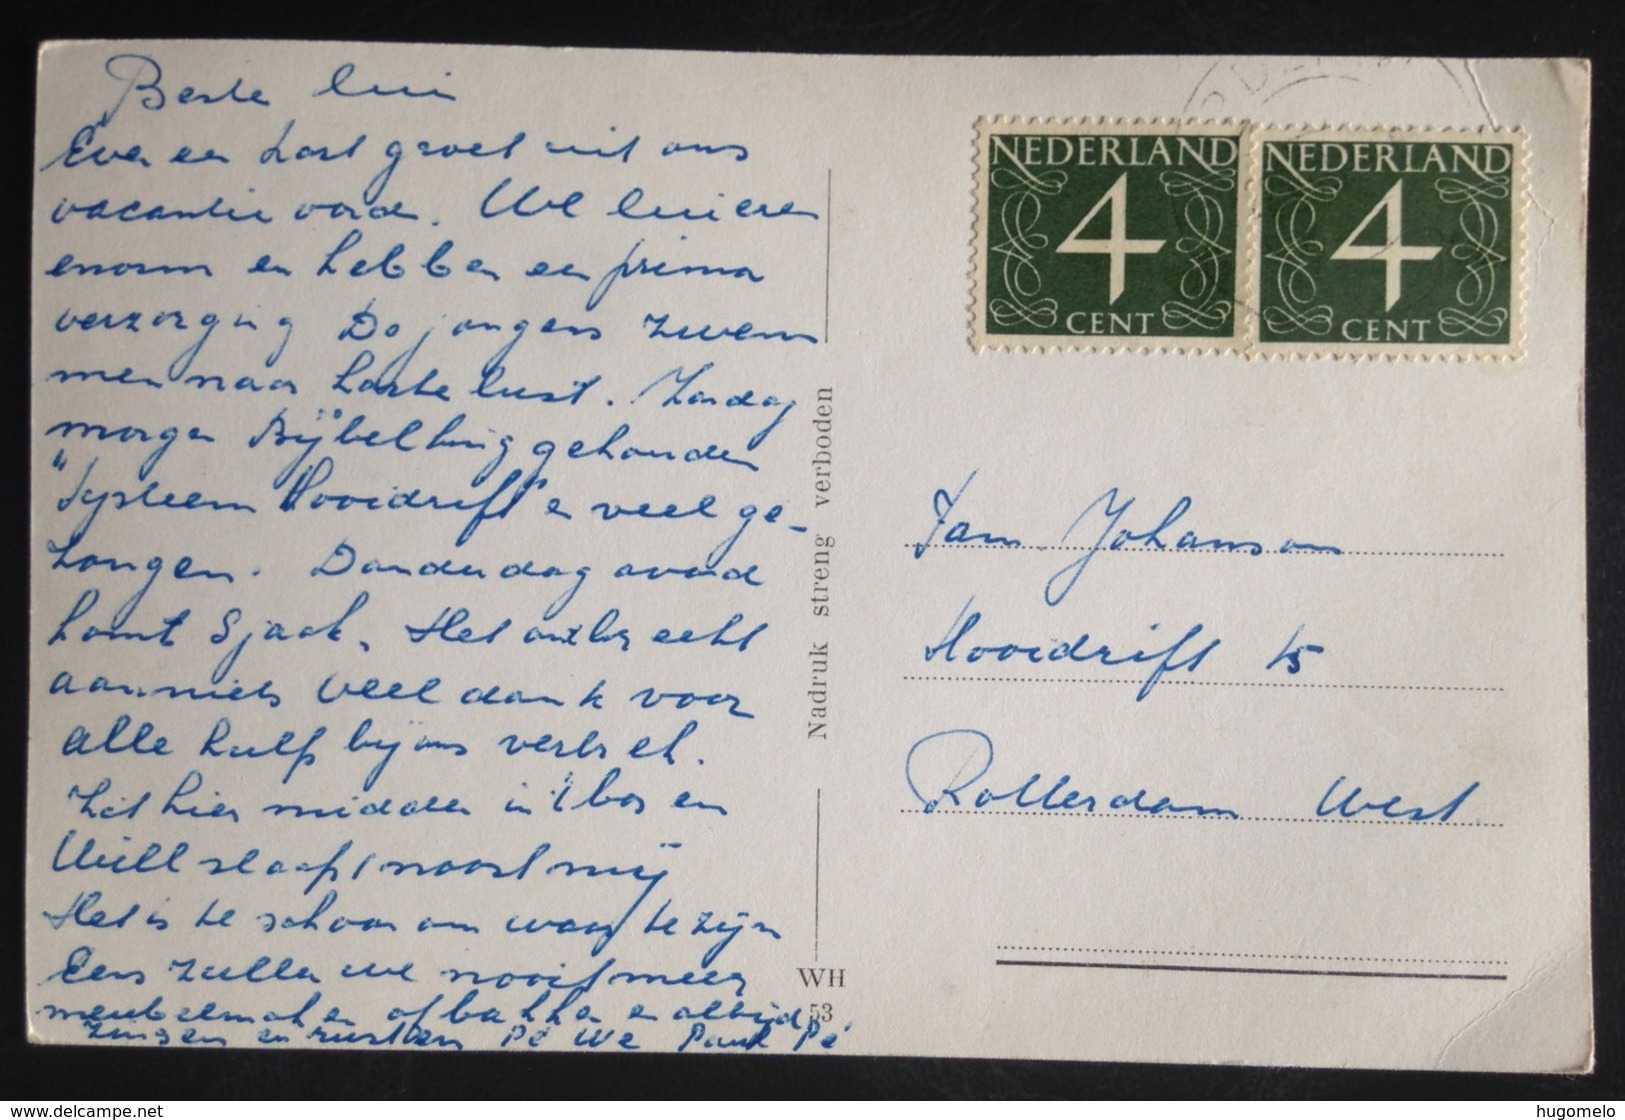 Beste lui
Even een hart groet uit ons
vacantie oord. We luieren
enorm en hebben een prima
verzorging De jongens zwem
men naar harte lust. Zondag
morgen Bijbelkring gehouden
"Systeem Hooidrift" en veel ge-
zongen. Donderdag avond
komt Sjaak. Het ontbreekt
aan niets Veel dank voor
alle hulp bij ons vertrek.
Zit hier midden in 't bos en
Will slaapt naast mij
Het is te schoon om waar te zijn
Eens zullen we nooit meer
meubelmaken of bakken en altijd
zingen en rusten Pé We Paul Pé
NEDERLAND
4
CENT
NEDERLAND
4
CENT
Nadruk streng verboden
WH
53
Fam. Johanson
Hooidrift 15
Rotterdam West
delcampe.net
hugomelo